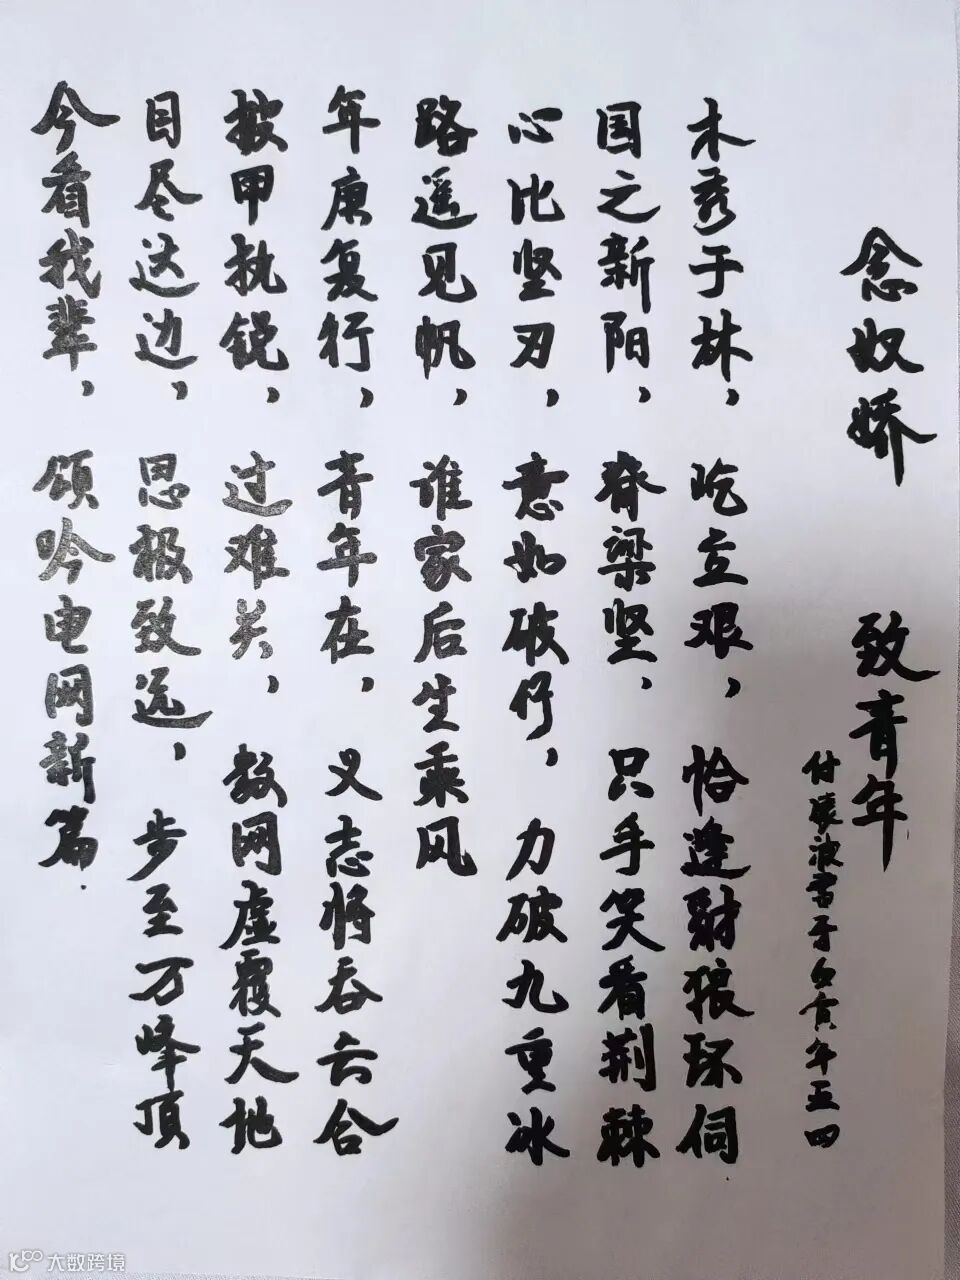 念奴娇 致青年
付骥波书于壬寅年五四
木秀于林，屹立艰，恰逢豺狼环伺
国之新阳，脊梁坚、只手笑看荆棘
心比坚刃，意如破竹，力破九重冰
路遥见帆，谁家后生乘风
年庚复行，青年在，义志将吞云合
披甲执锐，过难关，数网虚覆天地
目尽达边，思极致远，步至万峰顶
今看我辈，颂吟电网新篇.
大数跨境